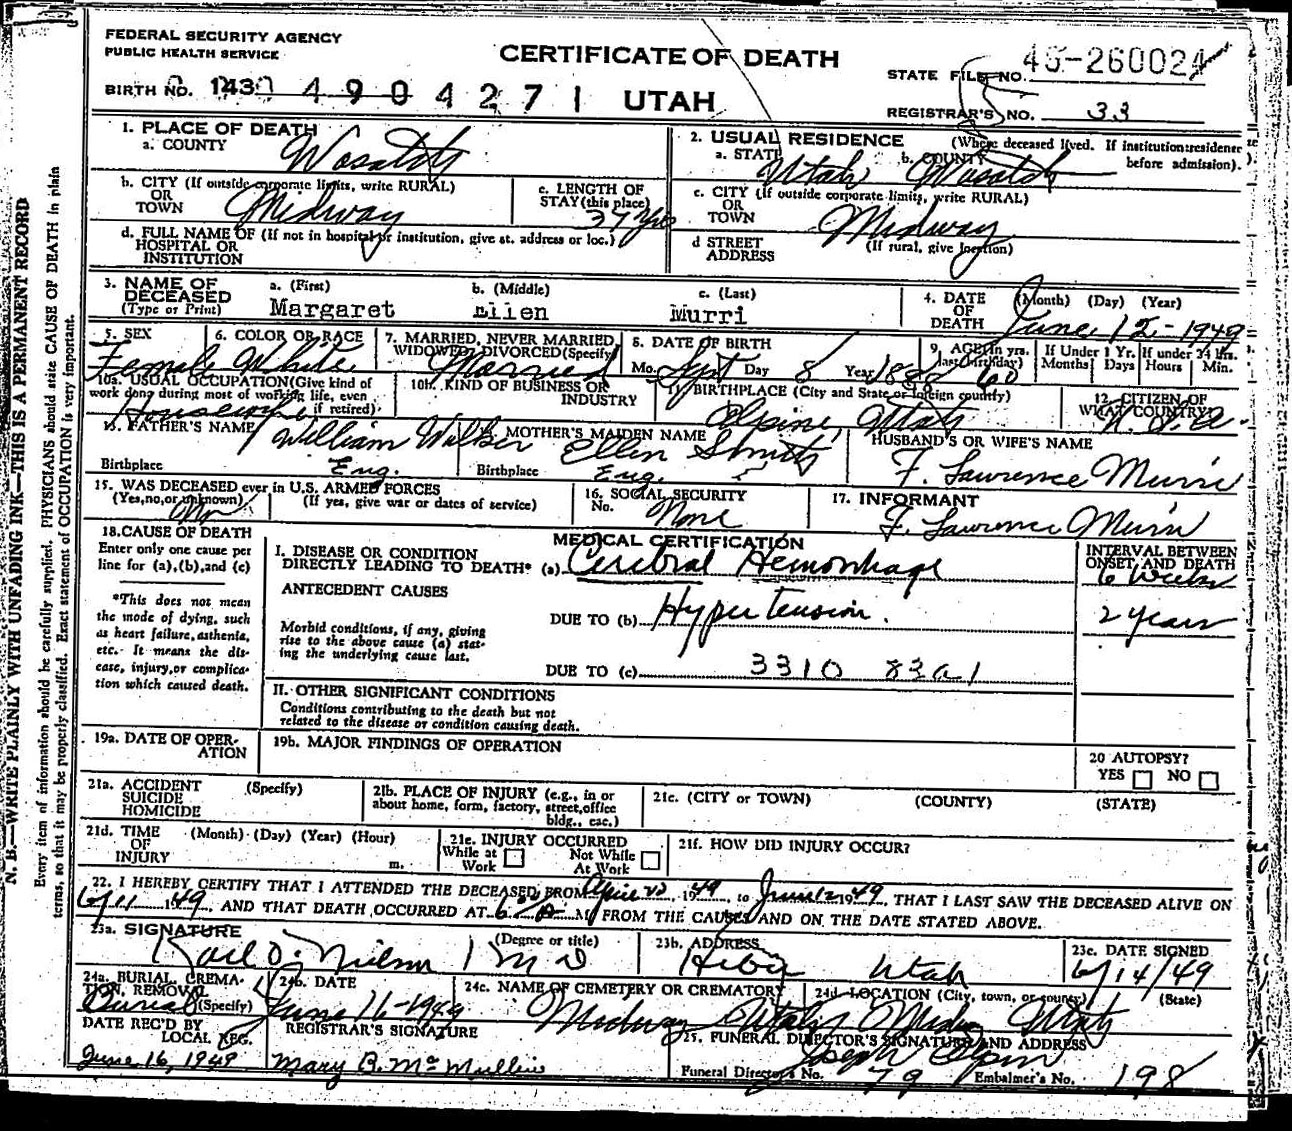 FEDERAL SECURITY AGENCY
PUBLIC HEALTH SERVICE
CERTIFICATE OF DEATH
STATE FILE NO. 49-260024
BIRTH NO. 143 4904271 UTAH
REGISTRAR'S NO. 33
1. PLACE OF DEATH
a. COUNTY Wasatch
2. USUAL RESIDENCE (Where deceased lived. If institution:residence before admission).
a. STATE Utah b. COUNTY Wasatch
b. CITY (If outside corporate limits, write RURAL) OR TOWN Midway
c. LENGTH OF STAY (this place) 37 yrs
c. CITY (If outside corporate limits, write RURAL) OR TOWN Midway
d. FULL NAME OF (If not in hospital or institution, give st. address or loc.) HOSPITAL OR INSTITUTION
d STREET ADDRESS (If rural, give location)
3. NAME OF DECEASED (Type or Print)
a. (First) Margaret
b. (Middle) Ellen
c. (Last) Murri
4. DATE OF DEATH (Month) (Day) (Year) June 12-1949
5. SEX Female
6. COLOR OR RACE White
7. MARRIED, NEVER MARRIED, WIDOWED, DIVORCED (Specify) Married
8. DATE OF BIRTH Mo. Sept Day 8 Year 1888
9. AGE (in yrs. last birthday) 60
If Under 1 Yr. Months Days
If under 24 Hrs. Hours Min.
10a. USUAL OCCUPATION (Give kind of work done during most of working life, even if retired) Housewife
10b. KIND OF BUSINESS OR INDUSTRY
11. BIRTHPLACE (City and State or foreign country) Alpine, Utah
12. CITIZEN OF WHAT COUNTRY? U. S. A.
13. FATHER'S NAME William Walker
Birthplace Eng.
MOTHER'S MAIDEN NAME Ellen
Birthplace Eng.
HUSBAND'S OR WIFE'S NAME F. Lawrence Murri
15. WAS DECEASED ever in U.S. ARMED FORCES
(Yes, no, or unknown) No (If yes, give war or dates of service)
16. SOCIAL SECURITY No. None
17. INFORMANT F. Lawrence Murri
18. CAUSE OF DEATH
Enter only one cause per line for (a), (b), and (c)
*This does not mean the mode of dying, such as heart failure, asthenia, etc. It means the disease, injury, or complication which caused death.
MEDICAL CERTIFICATION
INTERVAL BETWEEN ONSET AND DEATH
I. DISEASE OR CONDITION DIRECTLY LEADING TO DEATH* (a) Cerebral Hemorrhage 6 weeks
ANTECEDENT CAUSES
Morbid conditions, if any, giving rise to the above cause (a) stating the underlying cause last.
DUE TO (b) Hypertension. 2 years
DUE TO (c) 3310 83a1
II. OTHER SIGNIFICANT CONDITIONS
Conditions contributing to the death but not related to the disease or condition causing death.
19a. DATE OF OPERATION
19b. MAJOR FINDINGS OF OPERATION
20 AUTOPSY? YES NO
21a. ACCIDENT SUICIDE HOMICIDE (Specify)
21b. PLACE OF INJURY (e.g., in or about home, form, factory, street, office bldg., eac.)
21c. (CITY or TOWN) (COUNTY) (STATE)
21d. TIME OF INJURY (Month) (Day) (Year) (Hour) m.
21e. INJURY OCCURRED While at Work Not While At Work
21f. HOW DID INJURY OCCUR?
22. I HEREBY CERTIFY THAT I ATTENDED THE DECEASED FROM April 1949, to June 12 1949, THAT I LAST SAW THE DECEASED ALIVE ON
6/11 1949, AND THAT DEATH OCCURRED AT 6 A M FROM THE CAUSES AND ON THE DATE STATED ABOVE.
23a. SIGNATURE Karl O. Nielson (Degree or title) M D
23b. ADDRESS Heber Utah
23c. DATE SIGNED 6/14/49
24a. BURIAL, CREMATION, REMOVAL (Specify) Burial
24b. DATE June 16-1949
24c. NAME OF CEMETERY OR CREMATORY Midway Utah
24d. LOCATION (City, town, or county) (State) Midway Utah
DATE REC'D BY LOCAL REG. June 16, 1949
REGISTRAR'S SIGNATURE Mary B. McMullin
25. FUNERAL DIRECTOR'S SIGNATURE AND ADDRESS Joseph
Funeral Director's No. 79 Embalmer's No. 198
N. B.—WRITE PLAINLY WITH UNFADING INK—THIS IS A PERMANENT RECORD
Every item of information should be carefully supplied. PHYSICIANS should state CAUSE OF DEATH in plain
terms, so that it may be properly classified. Exact statement of OCCUPATION is very important.